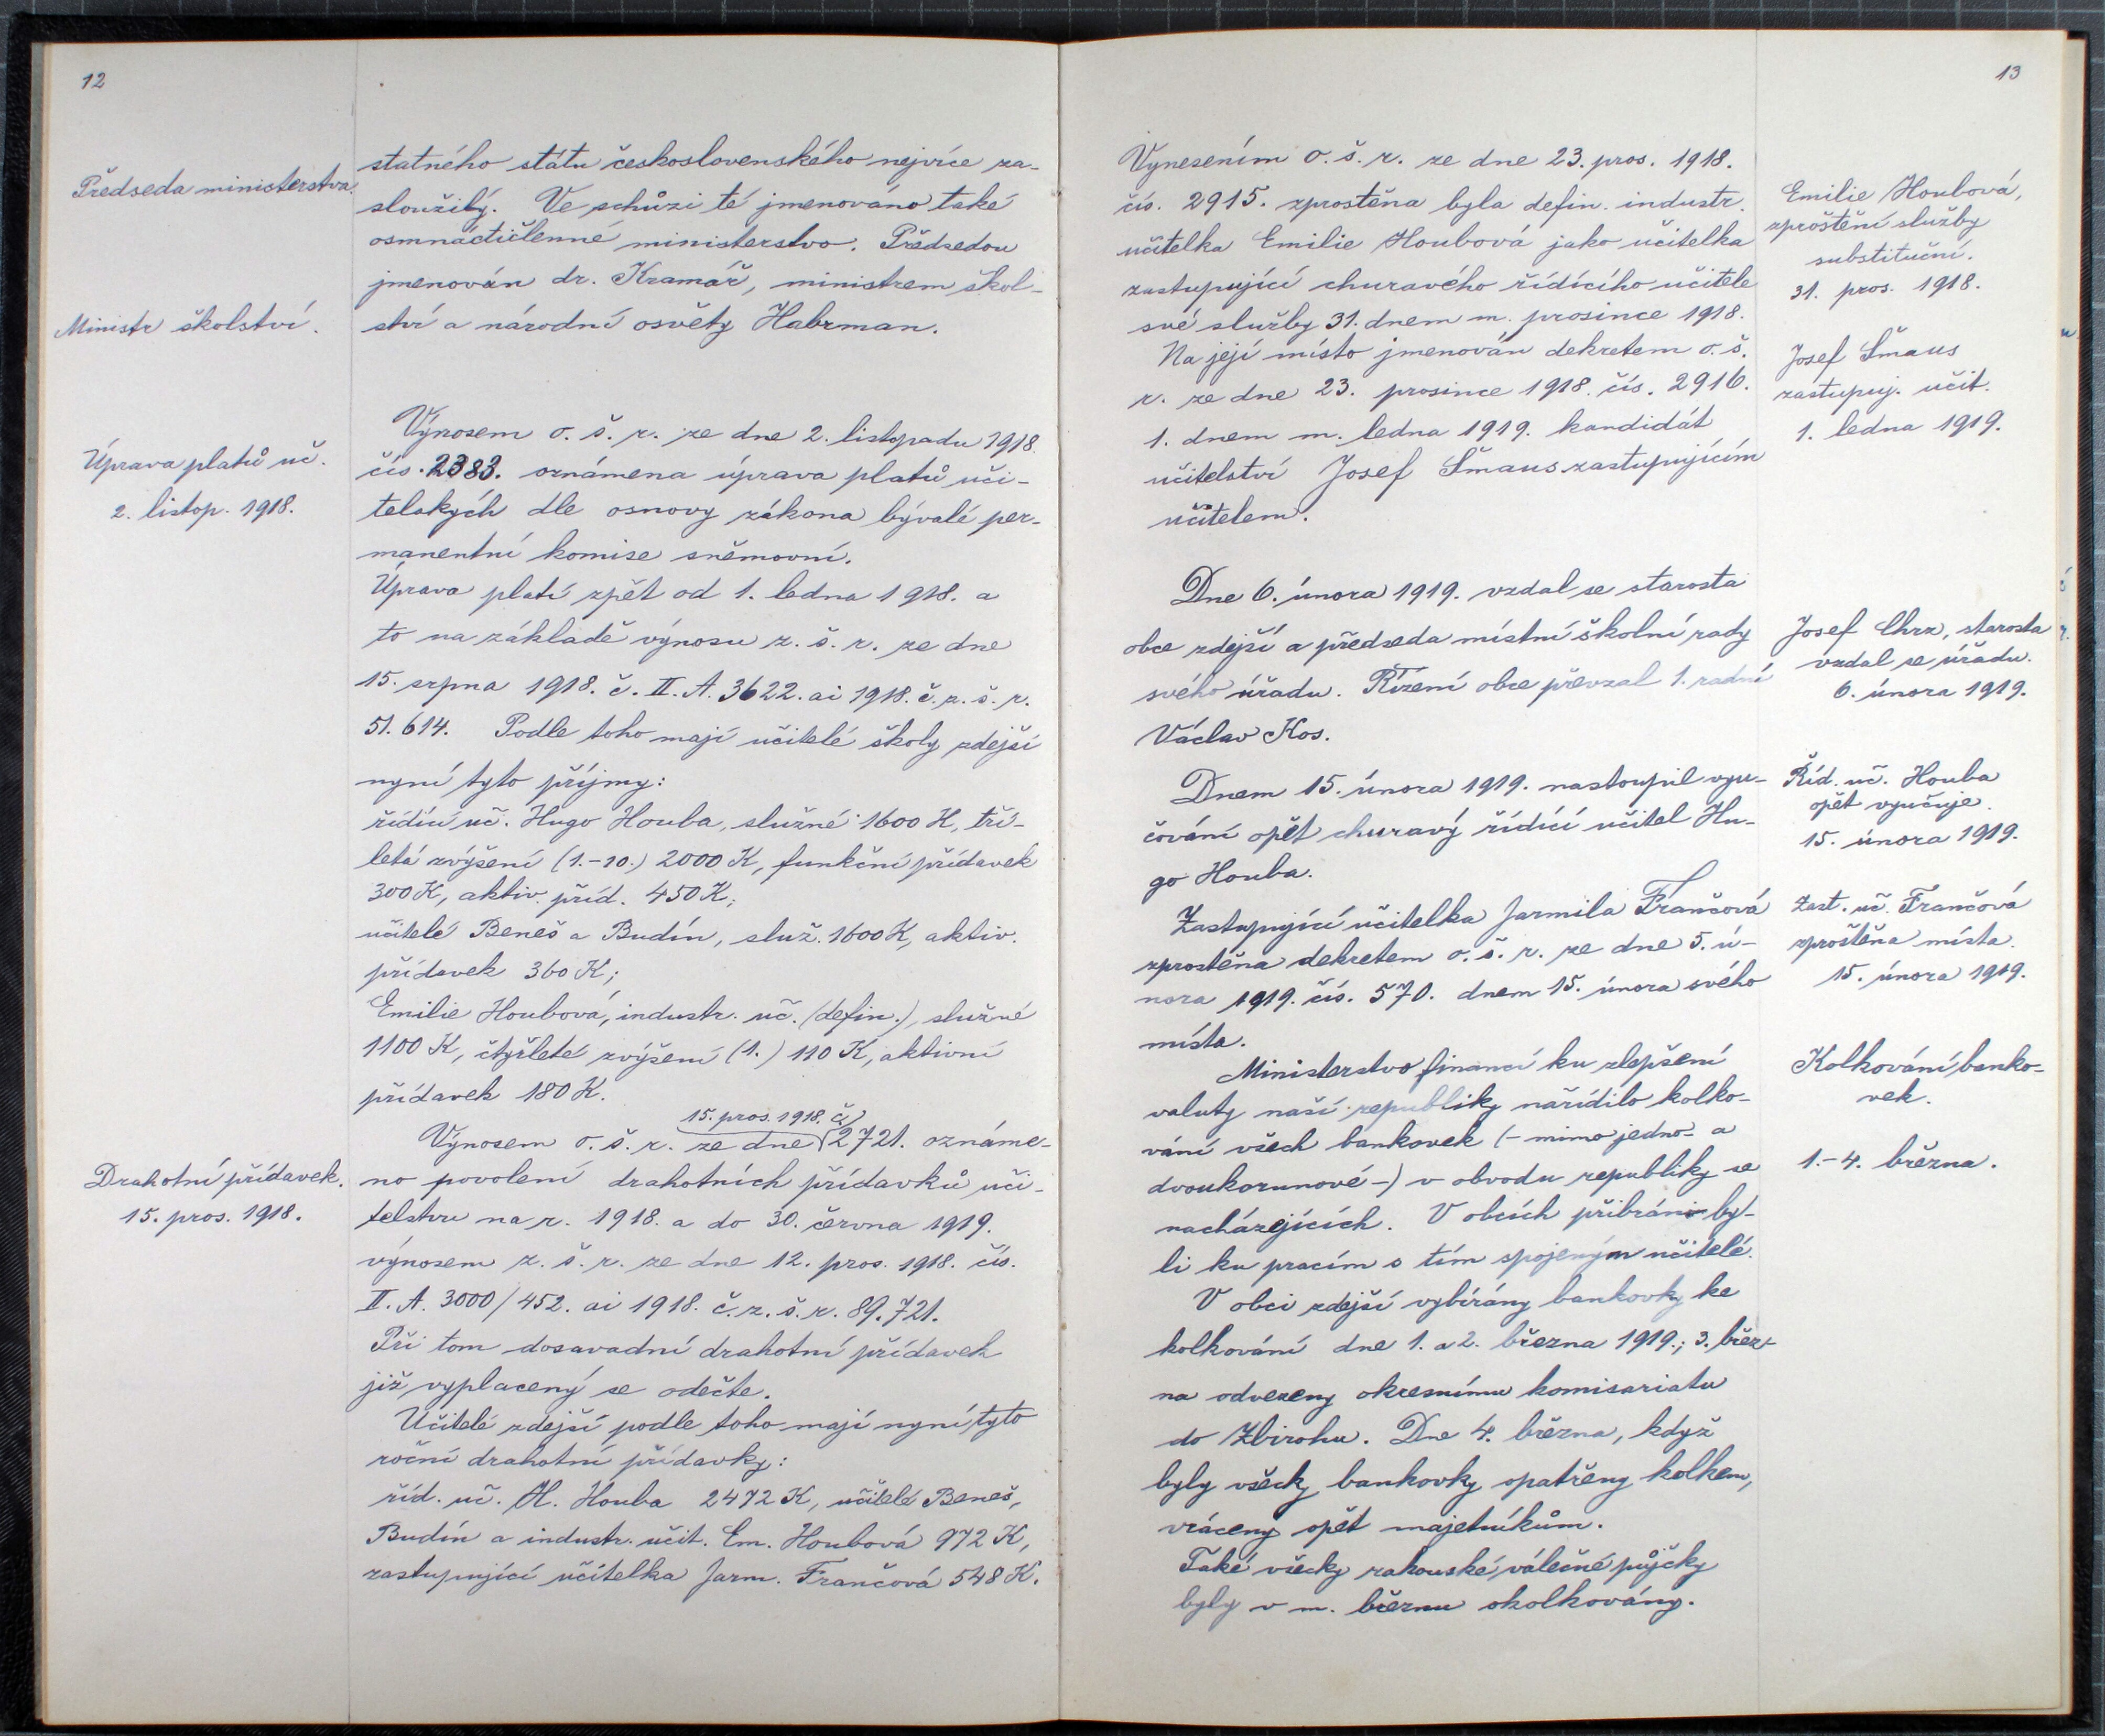 12
Předseda ministerstva.
Ministr školství.
Úprava platů uč.
2. listop. 1918.
Drahotní přídavek.
15. pros. 1918.
statného státu československého nejvíce za-
sloužilý. Ve schůzi té jmenováno také
osmnáctičlenné ministerstvo. Předsedou
jmenován dr. Kramář, ministrem škol-
ství a národní osvěty Habrman.
Výnosem o. š. r. ze dne 2. listopadu 1918.
čís. 2383. oznámena úprava platů uči-
telských dle osnovy zákona bývalé per-
manentní komise sněmovní.
Úprava platí zpět od 1. ledna 1918. a
to na základě výnosu z. š. r. ze dne
15. srpna 1918. č. II. A. 3622. ai 1918. č. z. š. r.
51.614. Podle toho mají učitelé školy zdejší
nyní tyto příjmy:
řídící uč. Hugo Houba, služné 1600 K, tří-
letá zvýšení (1.-10.) 2000 K, funkční přídavek
300 K, aktiv. příd. 450 K;
učitelé Beneš a Budín, služ. 1600 K, aktiv.
přídavek 360 K;
Emilie Houbová, industr. uč. (defin.), služné
1100 K, čtyřleté zvýšení (1.) 110 K, aktivní
přídavek 180 K.
15. pros. 1918. č.
Výnosem o. š. r. ze dne 2721. oznáme-
no povolení drahotních přídavků uči-
telstvu na r. 1918. a do 30. června 1919.
výnosem z. š. r. ze dne 12. pros. 1918. čís.
II. A. 3000/452. ai 1918. č. z. š. r. 89.721.
Při tom dosavadní drahotní přídavek
již vyplacený se odečte.
Učitelé zdejší podle toho mají nyní tyto
roční drahotní přídavky:
říd. uč. H. Houba 2472 K, učitelé Beneš,
Budín a industr. učit. Em. Houbová 972 K,
zastupující učitelka Jarm. Frančová 548 K.
13
Vynesením o. š. r. ze dne 23. pros. 1918.
čís. 2915. zproštěna byla defin. industr.
učitelka Emilie Houbová jako učitelka
zastupující churavého řídícího učitele
své služby 31. dnem m. prosince 1918.
Na její místo jmenován dekretem o. š.
r. ze dne 23. prosince 1918. čís. 2916.
1. dnem m. ledna 1919. kandidát
učitelství Josef Šmaus zastupujícím
učitelem.
Dne 6. února 1919. vzdal se starosta
obce zdejší a předseda místní školní rady
svého úřadu. Řízení obce převzal 1. radní
Václav Kos.
Dnem 15. února 1919. nastoupil vyu-
čování opět churavý řídící učitel Hu-
go Houba.
Zastupující učitelka Jarmila Frančová
zproštěna dekretem o. š. r. ze dne 5. ú-
nora 1919. čís. 570. dnem 15. února svého
místa.
Ministerstvo financí ku zlepšení
valuty naší republiky nařídilo kolko-
vání všech bankovek (- mimo jedno- a
dvoukorunové -) v obvodu republiky se
nacházejících. V obcích přibráni by-
li ku pracím s tím spojeným učitelé.
V obci zdejší vybírány bankovky ke
kolkování dne 1. a 2. března 1919.; 3. břez-
na odvezeny okresnímu komisariatu
do Zbirohu. Dne 4. března, když
byly všecky bankovky opatřeny kolkem,
vráceny opět majetníkům.
Také všecky rakouské válečné půjčky
byly v m. březnu okolkovány.
Emilie Houbová,
zproštění služby
substituční.
31. pros. 1918.
Josef Šmaus
zastupuj. učit.
1. ledna 1919.
Josef Chrz, starosta
vzdal se úřadu.
6. února 1919.
Říd. uč. Houba
opět vyučuje.
15. února 1919.
Zast. uč. Frančová
zproštěna místa.
15. února 1919.
Kolkování banko-
vek.
1.-4. března.